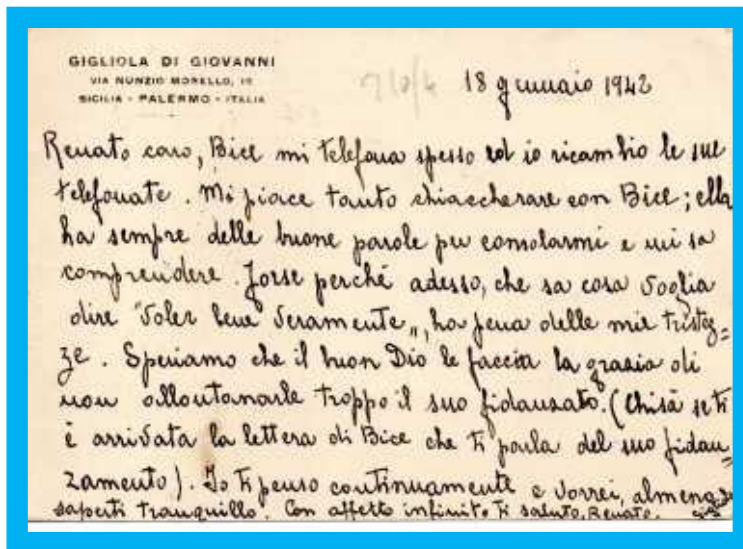 GIGLIOLA DI GIOVANNI
VIA NUNZIO MORELLO,
SICILIA - PALERMO - ITALIA
18 gennaio 1942
Renato caro, Bice mi telefona spesso ed io ricambio le sue
telefonate. Mi piace tanto chiaccherare con Bice; ella
ha sempre delle buone parole per consolarmi e mi sa
comprendere. Forse perché adesso, che sa cosa voglia
dire "voler bene veramente", ha pena delle mie tristez=
ze. Speriamo che il buon Dio le faccia la grazia di
non allontanarle troppo il suo fidanzato. (Chisà se ti
è arrivata la lettera di Bice che ti parla del suo fidan=
zamento). Io ti penso continuamente e vorrei, almeno,
saperti tranquillo. Con affetto infinito ti saluto, Renato.